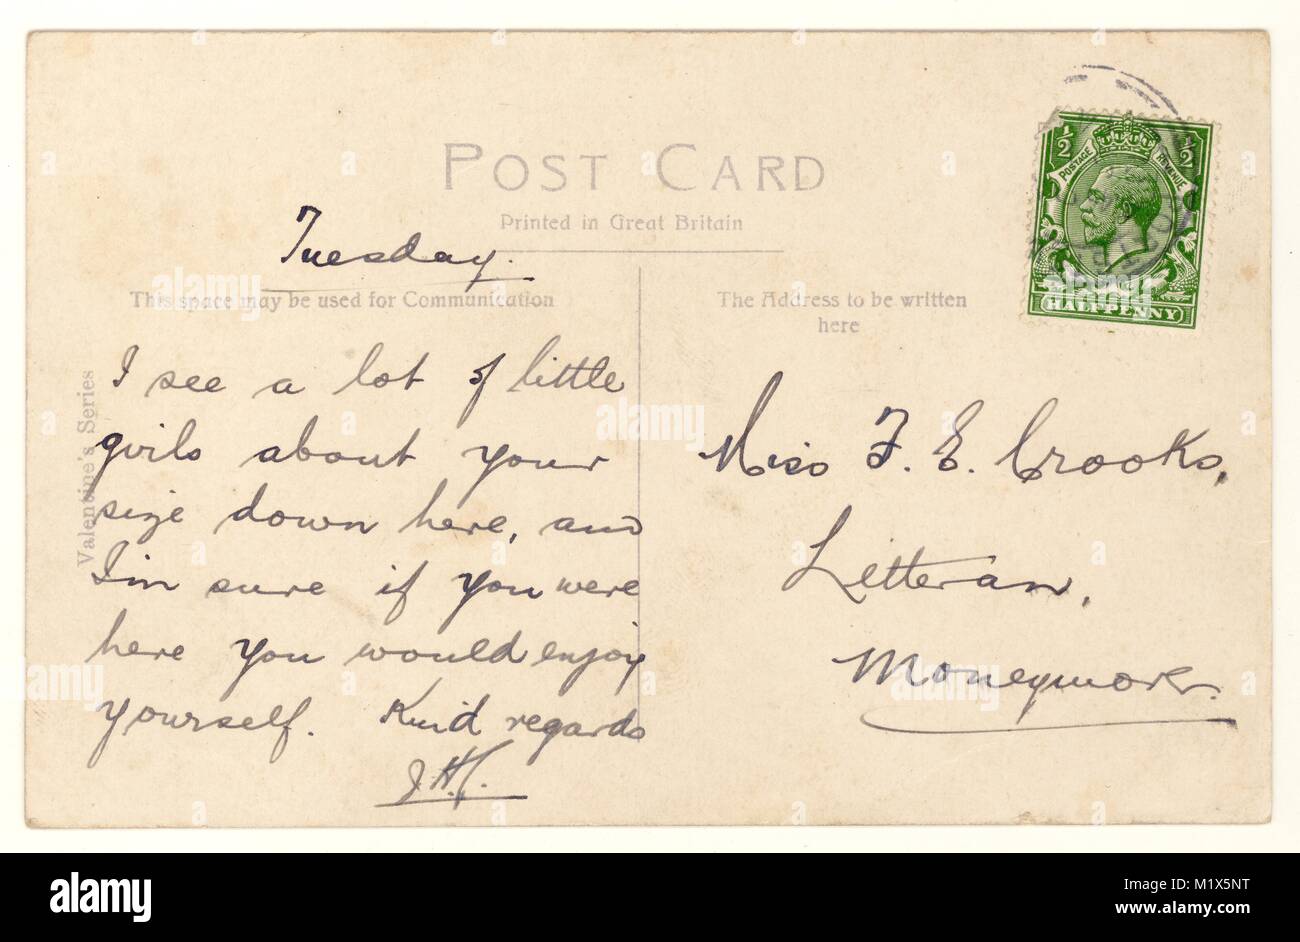 POST CARD
Printed in Great Britain
Tuesday.
This space may be used for Communication
The Address to be written
here
½ ½
POSTAGE REVENUE
HALFPENNY
Valentine's Series
I see a lot of little
girls about your
size down here, and
I'm sure if you were
here you would enjoy
yourself. Kind regards
Miss F. E. Crooks,
Letteran,
Moneymore.
alamy
alamy
Image ID: M1X5NT
www.alamy.com